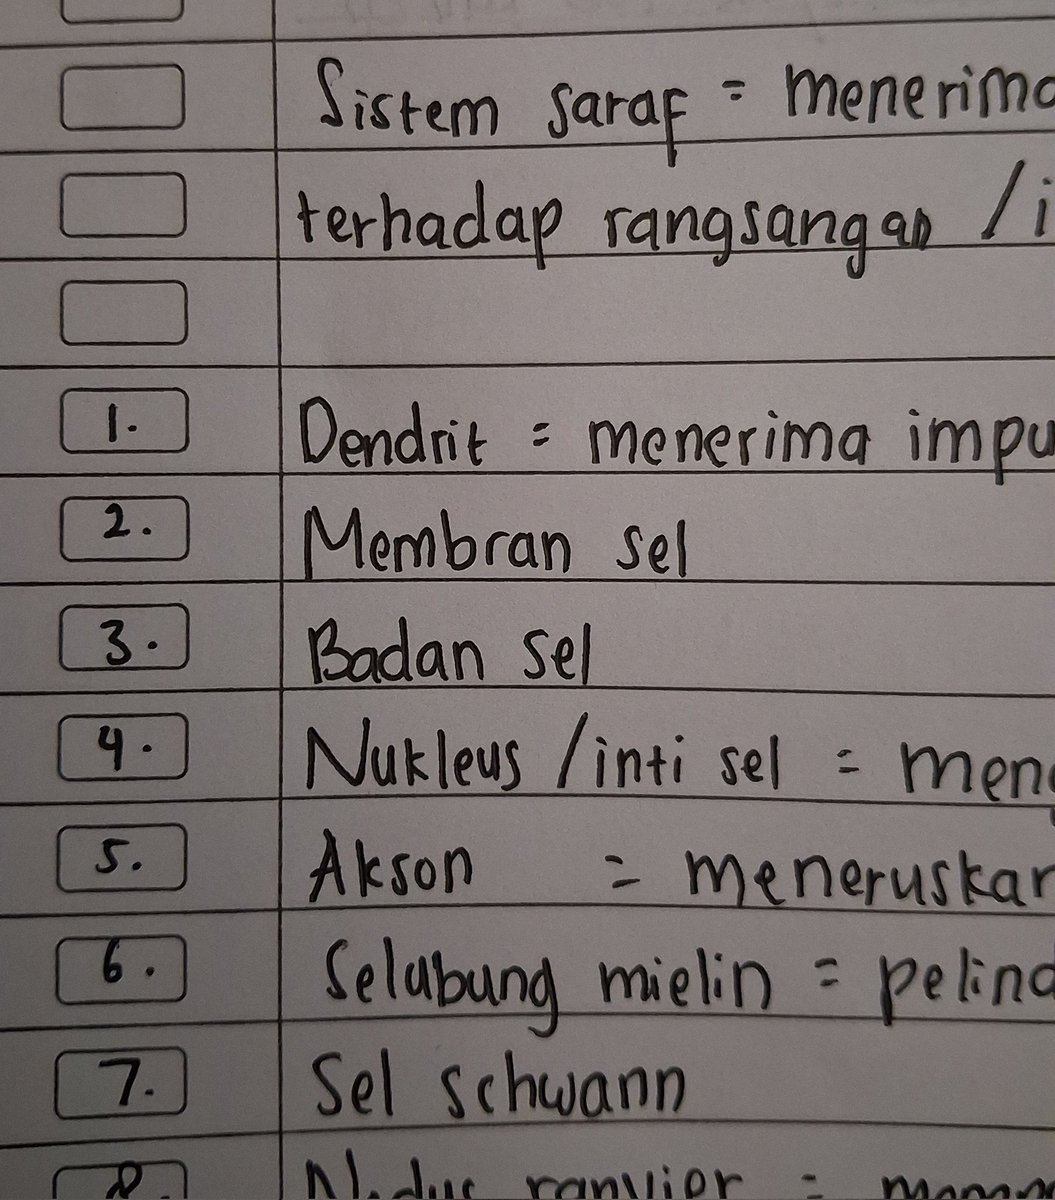 Sistem saraf = menerima
terhadap rangsangan /i
1. Dendrit = menerima impu
2. Membran sel
3. Badan sel
4. Nukleus /inti sel = men
5. Akson = meneruskan
6. Selubung mielin = pelind
7. Sel schwann
8. Nodus ranvier =